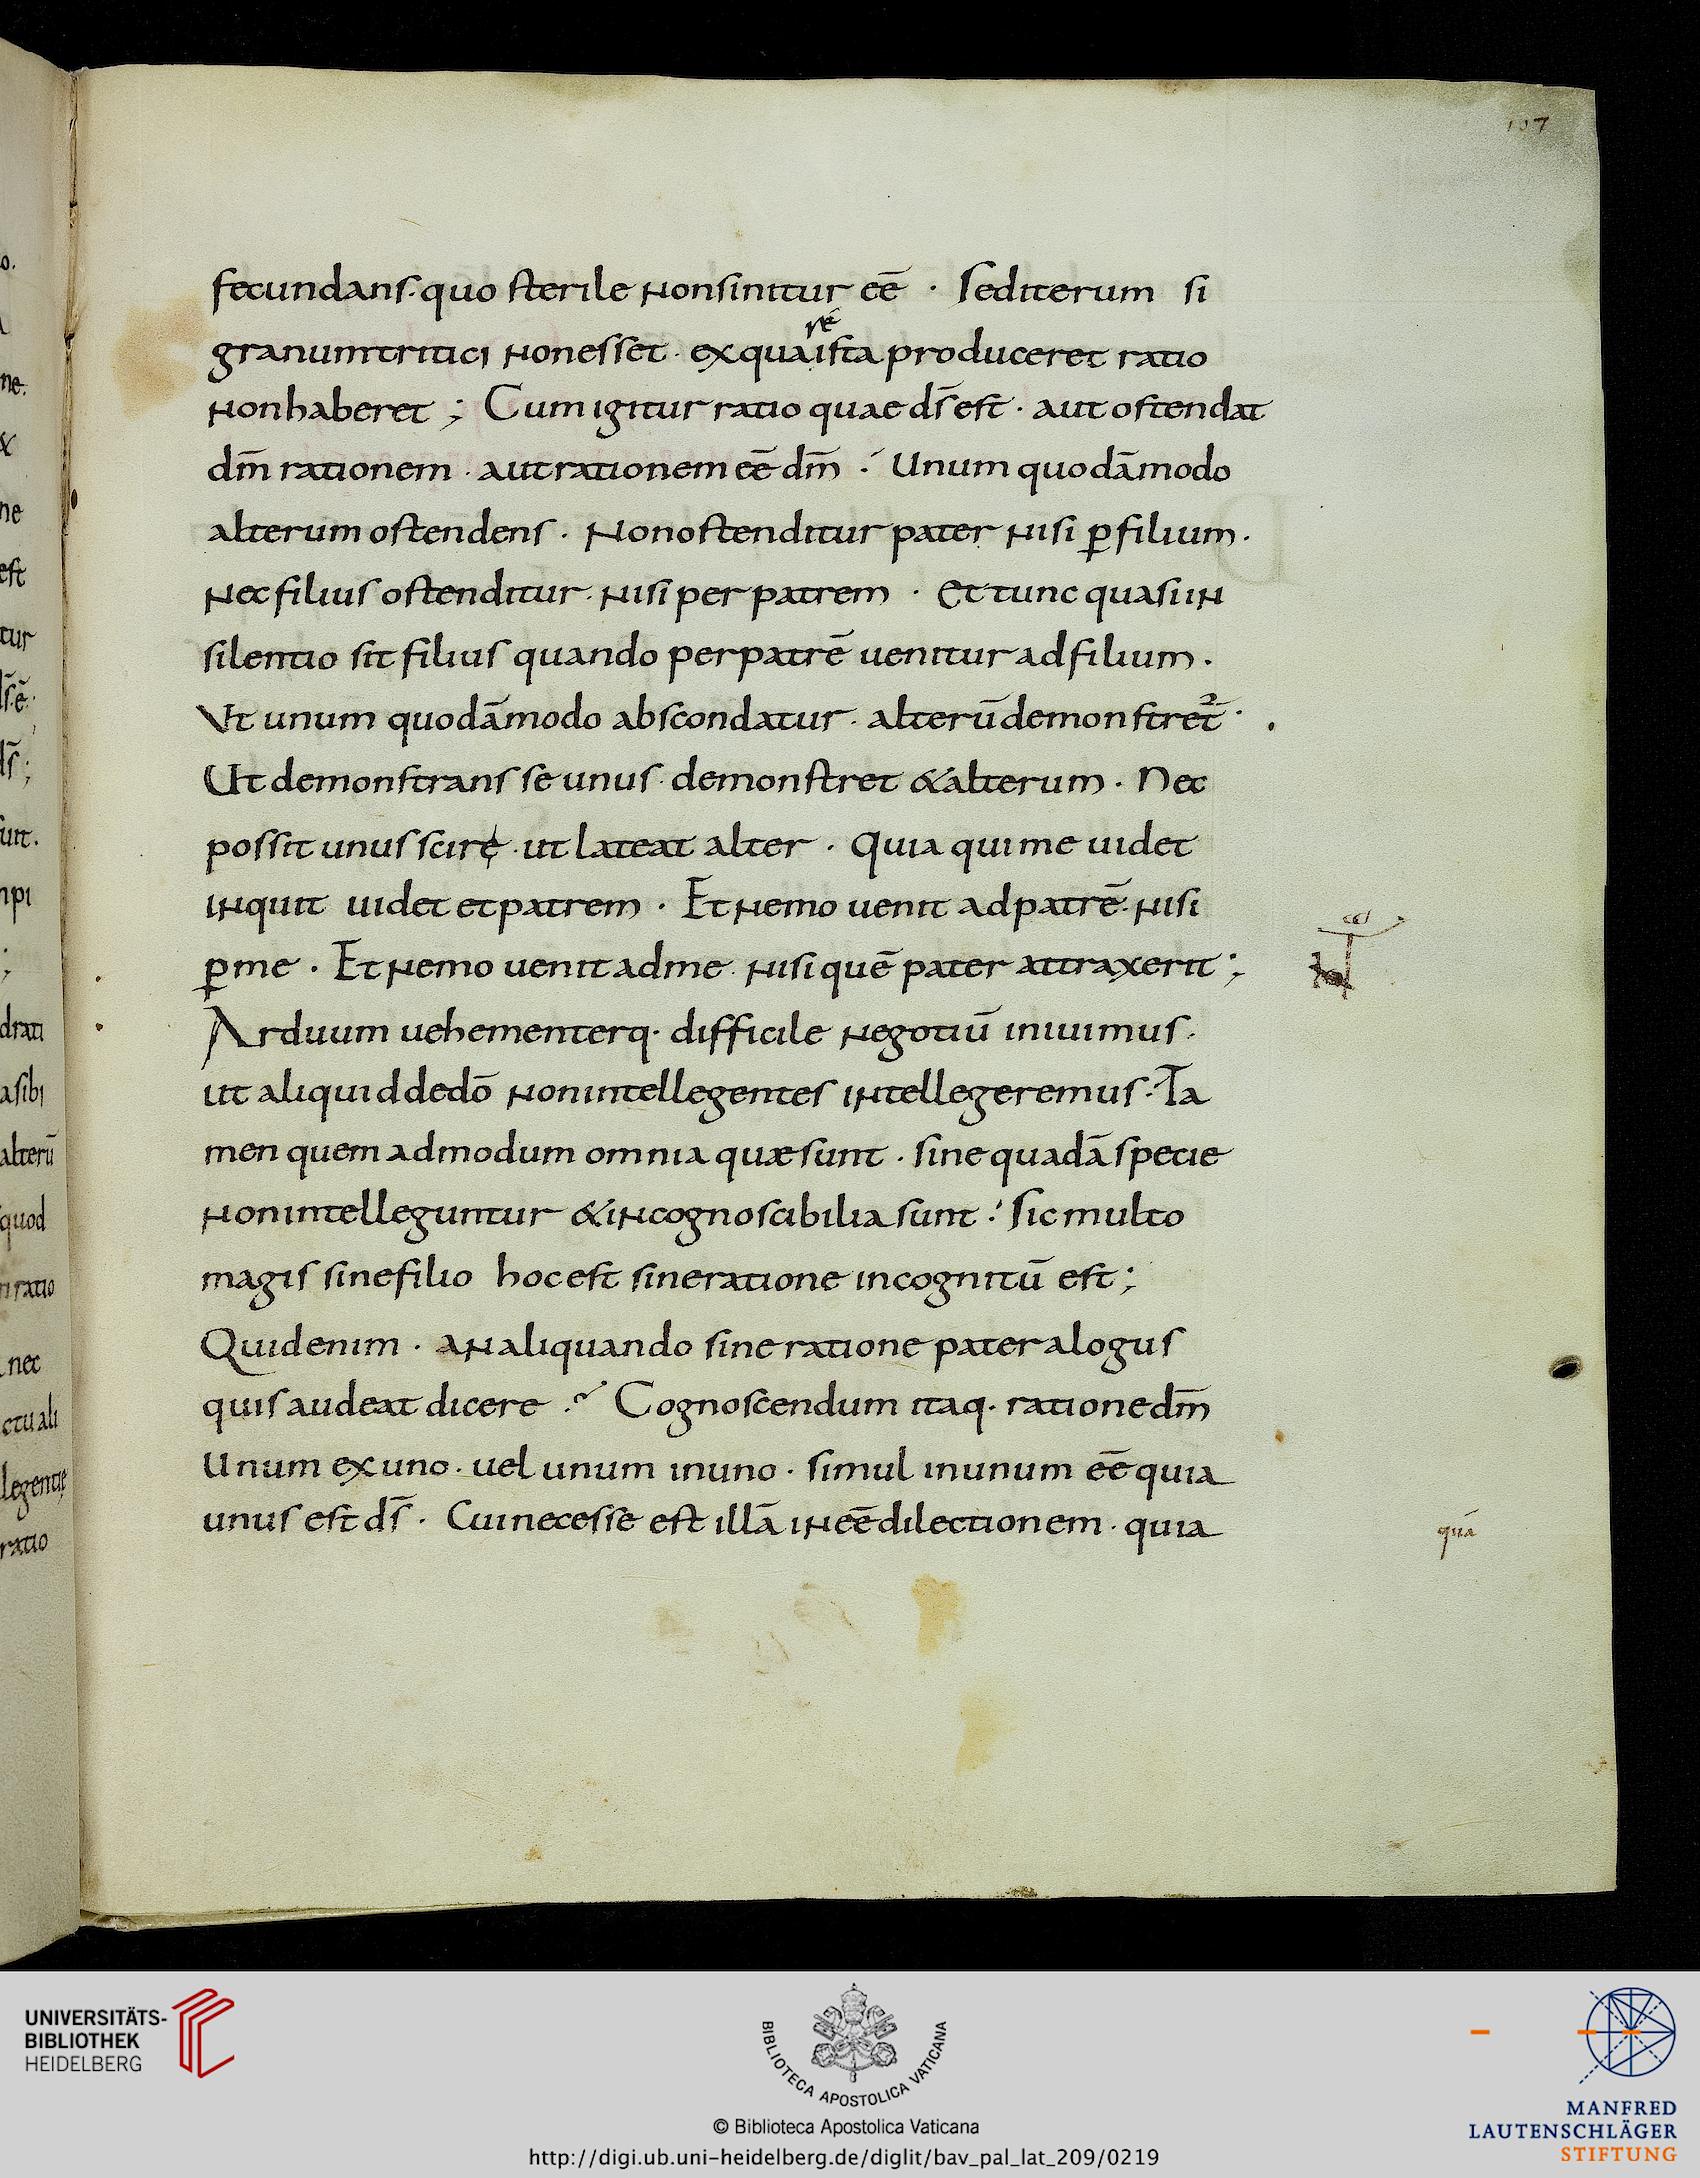 107
fecundans· quo sterile non sinitur eē · Sed iterum si
granum tritici non esset · ex qua re ista produceret ratio
non haberet ; Cum igitur ratio quae ds̄ est · aut ostendat
dm̄ rationem · aut rationem eē dm̄ ·́ Unum quodāmodo
alterum ostendens · Non ostenditur pater nisi ꝑ filium ·
Nec filius ostenditur · nisi per patrem · Et tunc quasi in
silentio sit filius quando per patrē uenitur ad filium ·
Vt unum quodāmodo abscondatur · alterū demonstret̄² ·
Ut demonstrans se unus · demonstret & alterum · Nec
possit unus scire · ut lateat alter · Quia qui me uidet
inquit uidet et patrem · Et nemo uenit ad patrē · nisi
ꝑ me · Et nemo uenit ad me · nisi quē pater attraxerit ;
Arduum uehementerq· difficile negotiū iniuimus ·
ut aliquid de dō non intellegentes intellegeremus ·́ Ta
men quem admodum omnia quæ sunt · sine quadā specie
non intelleguntur & incognoscibilia sunt ·́ Sic multo
magis sine filio hoc est sine ratione incognitū est ;
Quid enim · an aliquando sine ratione pater alogus
quis audeat dicere ? Cognoscendum itaq· ratione dm̄
Unum ex uno · uel unum in uno · simul in unum eē quia
unus est ds̄ · Cui necesse est illā ineē dilectionem · quia
quá
UNIVERSITÄTS-
BIBLIOTHEK
HEIDELBERG
BIBLIOTECA APOSTOLICA VATICANA
© Biblioteca Apostolica Vaticana
http://digi.ub.uni-heidelberg.de/diglit/bav_pal_lat_209/0219
MANFRED
LAUTENSCHLÄGER
STIFTUNG